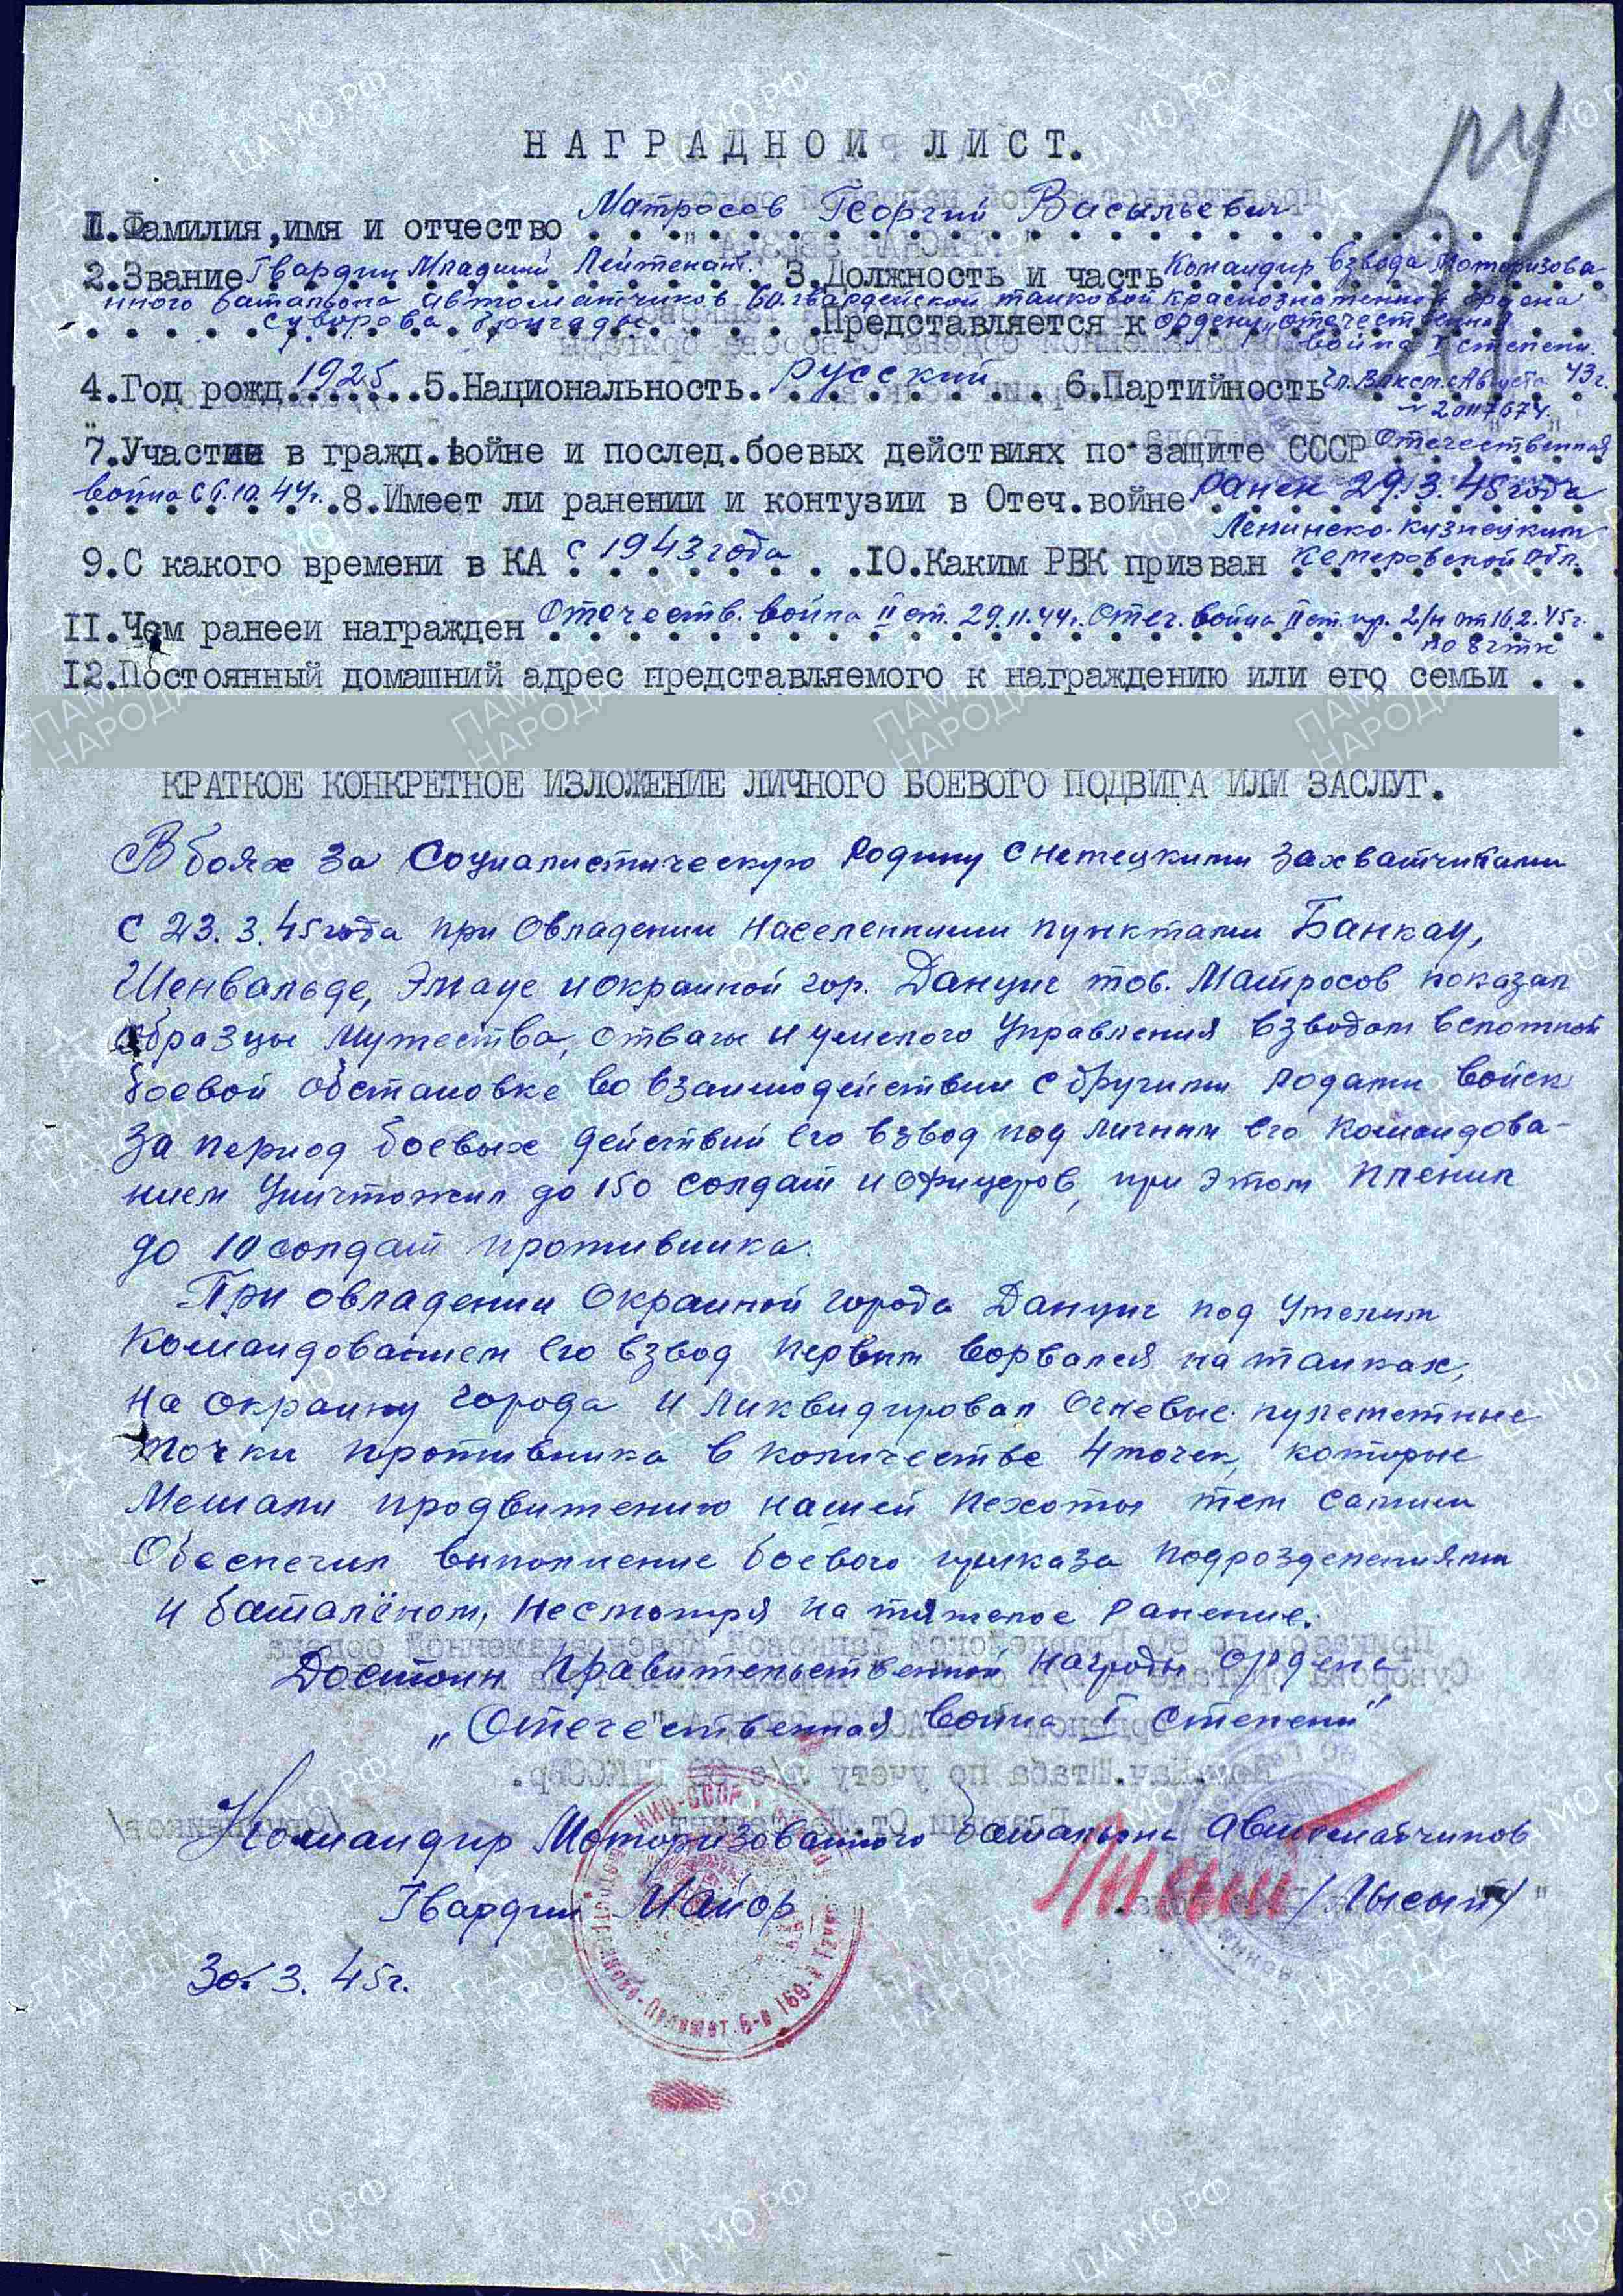 НАГРАДНОЙ ЛИСТ.
1.Фамилия,имя и отчество Матросов Георгий Васильевич
2.Звание Гвардии Младший Лейтенант. 3.Должность и часть Командир взвода Моторизова-
нного батальона автоматчиков 60 гвардейской танковой Краснознаменной ордена
Суворова бригады. Представляется к ордену „Отечественная
война I степени.
4.Год рожд. 1925 5.Национальность. русский 6.Партийность Чл. Влксм с Августа 43г.
7.Участие в гражд.войне и послед.боевых действиях по защите СССР Отечественная
война с 6.10.44г. 8.Имеет ли ранении и контузии в Отеч.войне ранен 29.3.45 года
Ленинско-Кузнецким
9.С какого времени в КА с 1943 года 10.Каким РВК призван Кемеровской обл.
11.Чем ранееи награжден Отечеств. война II ст. 29.11.44г. Отеч. война II ст. пр. 2/н от 16.2.45г.
по 8 гтк
12.Постоянный домашний адрес представляемого к награждению или его семьи . .
КРАТКОЕ КОНКРЕТНОЕ ИЗЛОЖЕНИЕ ЛИЧНОГО БОЕВОГО ПОДВИГА ИЛИ ЗАСЛУГ.
В боях за Социалистическую Родину с немецкими захватчиками
с 23.3.45 года при Овладении Населенными пунктами Банкау,
Шенвальде, Эмаус и окраиной гор. Данциг тов. Матросов показал
образцы мужества, отваги и умелого Управления взводом в сложной
боевой обстановке во взаимодействии с другими родами войск
За период боевых действий его взвод под личным его командова-
нием Уничтожил до 150 солдат и офицеров, при этом пленил
до 10 солдат противника.
При овладении Окраиной города Данциг под Умелым
Командованием его взвод первым ворвался на танках,
на окраину города и ликвидировал Огневые пулеметные
точки противника в количестве 4 точек, которые
Мешали продвижению нашей пехоты тем самым
Обеспечил выполнение боевого приказа подрозделениями
и баталёном, несмотря на тяжелое ранение.
Достоин правительственной награды Ордена
„Отечественная война I степени"
Командир Моторизованного батальона Автоматчиков
Гвардии Майор /Лысый/
30.3.45г.